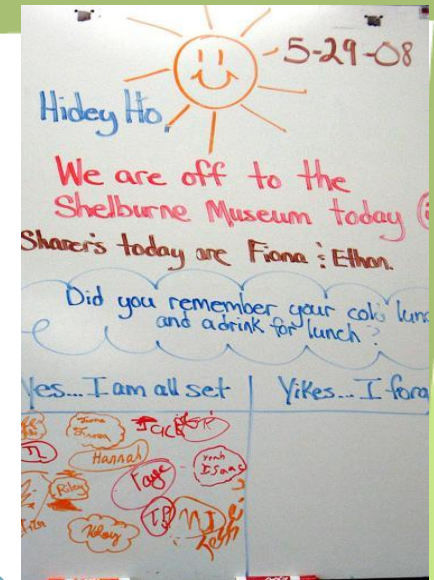 5-29-08
Hidey Ho,
We are off to the
Shelburne Museum today
Sharer's today are Fiona & Ethan.
Did you remember your cold lunc
and a drink for lunch?
Yes... I am all set
Yikes... I forg
Hannah
Faye
Yeah
Isaac
Riley
Kelsey